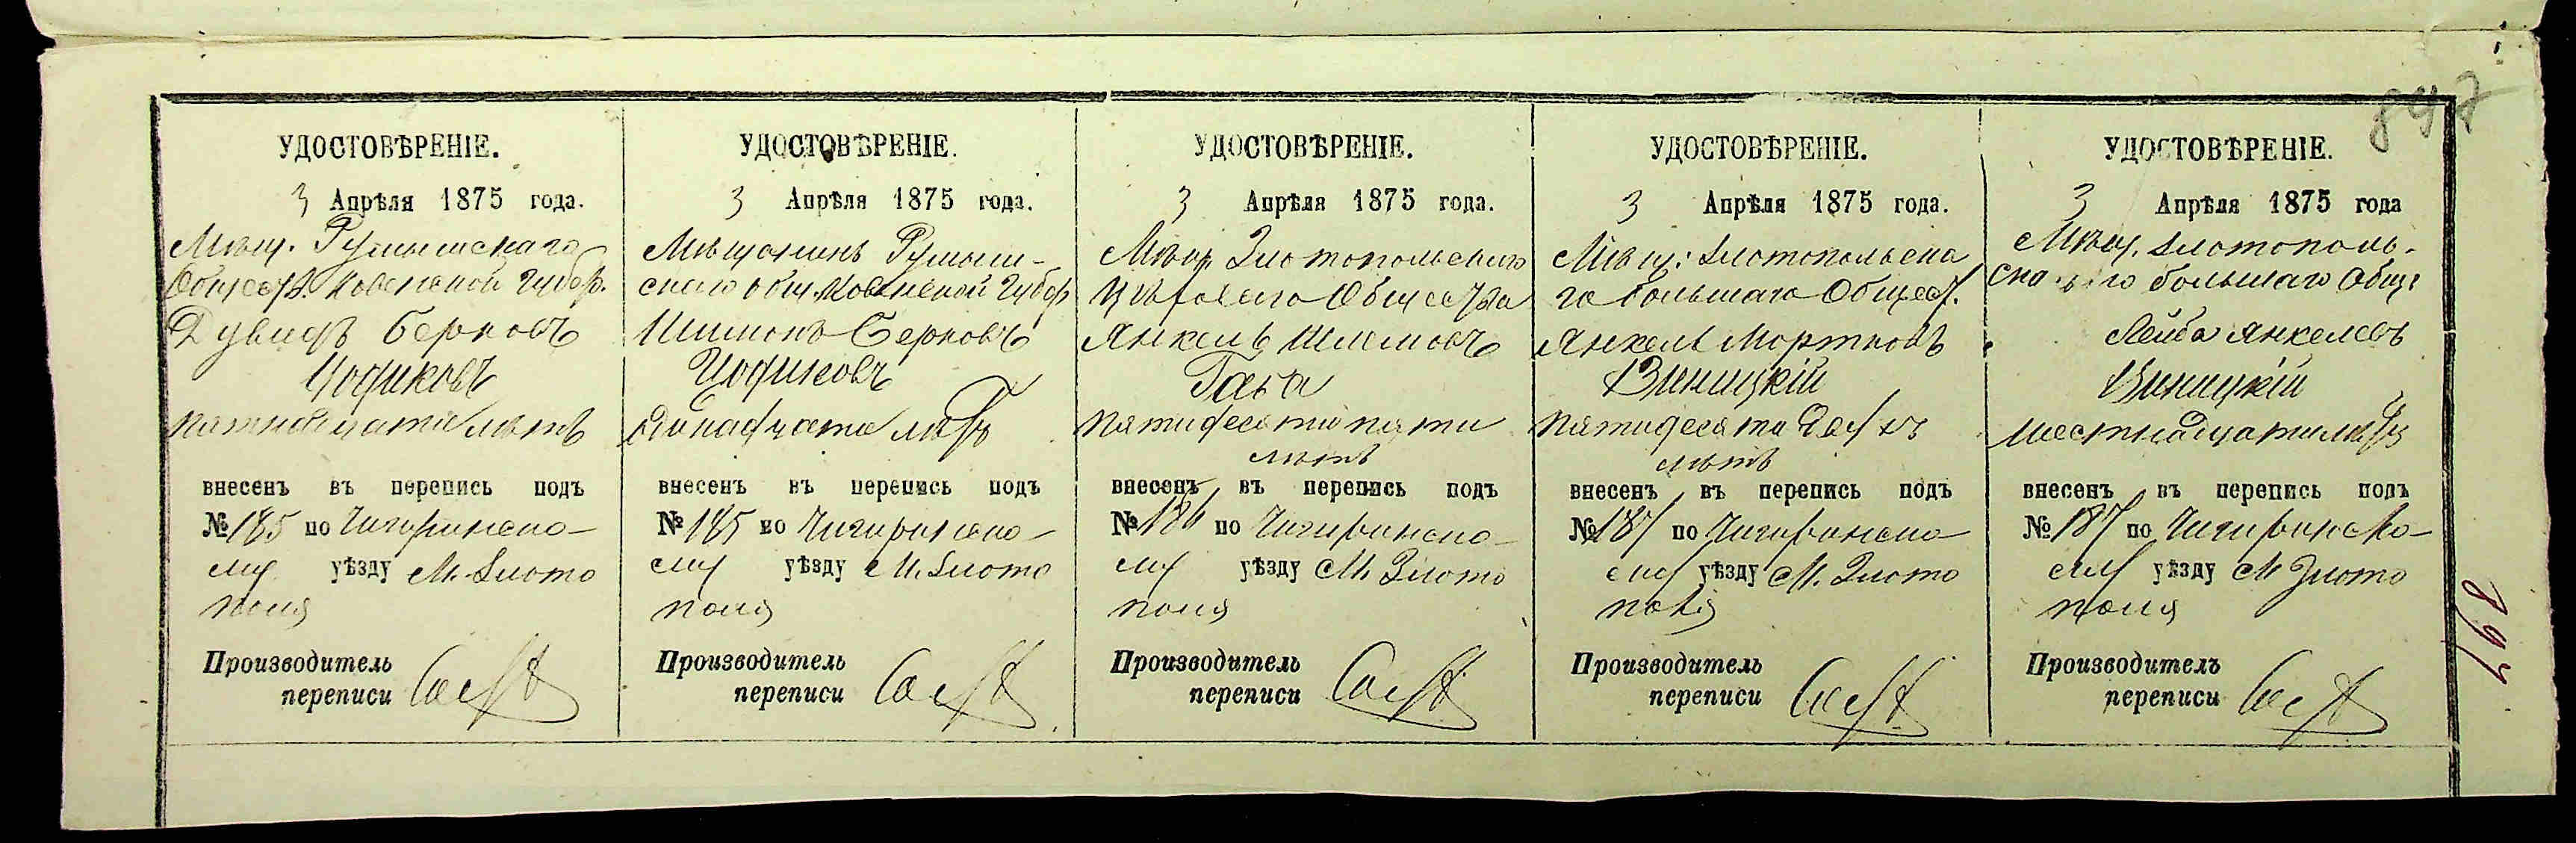 897
УДОСТОВѢРЕНІЕ.
3 Апрѣля 1875 года.
Мѣщ. Румшишскаго
Общест. Ковенской Губер.
Дувидъ Берковъ
Цодиковъ
пятнадцати лѣтъ
внесенъ въ перепись подъ
№ 185 по Чигиринско-
му уѣзду М. Злото
поля
Производитель
переписи
УДОСТОВѢРЕНІЕ.
3 Апрѣля 1875 года.
Мѣщанинъ Румши-
скаго общ. Ковенской Губер
Шимонъ Берковъ
Цодиковъ
двѣнадцати лѣтъ
внесенъ въ перепись подъ
№ 185 по Чигиринско-
му уѣзду М. Злото
поля
Производитель
переписи
УДОСТОВѢРЕНІЕ.
3 Апрѣля 1875 года.
Мѣщ. Злотопольскаго
Общества
Янкель Шлемовъ
пятидесяти пяти
лѣтъ
внесенъ въ перепись подъ
№ 186 по Чигиринско-
му уѣзду М. Злото
поля
Производитель
переписи
УДОСТОВѢРЕНІЕ.
3 Апрѣля 1875 года.
Мѣщ. Злотопольска
го большаго Общест.
Янкель Мортковъ
Виницкій
пятидесяти двухъ
лѣтъ
внесенъ въ перепись подъ
№ 187 по Чигиринско
му уѣзду М. Злото
поля
Производитель
переписи
УДОСТОВѢРЕНІЕ.
3 Апрѣля 1875 года
Мѣщ. Злотополь-
ска го большаго Общ.
Лейба Янкелевъ
Виницкій
шестнадцати лѣтъ
внесенъ въ перепись подъ
№ 187 по Чигиринско-
му уѣзду М Злото
поля
Производитель
переписи
897